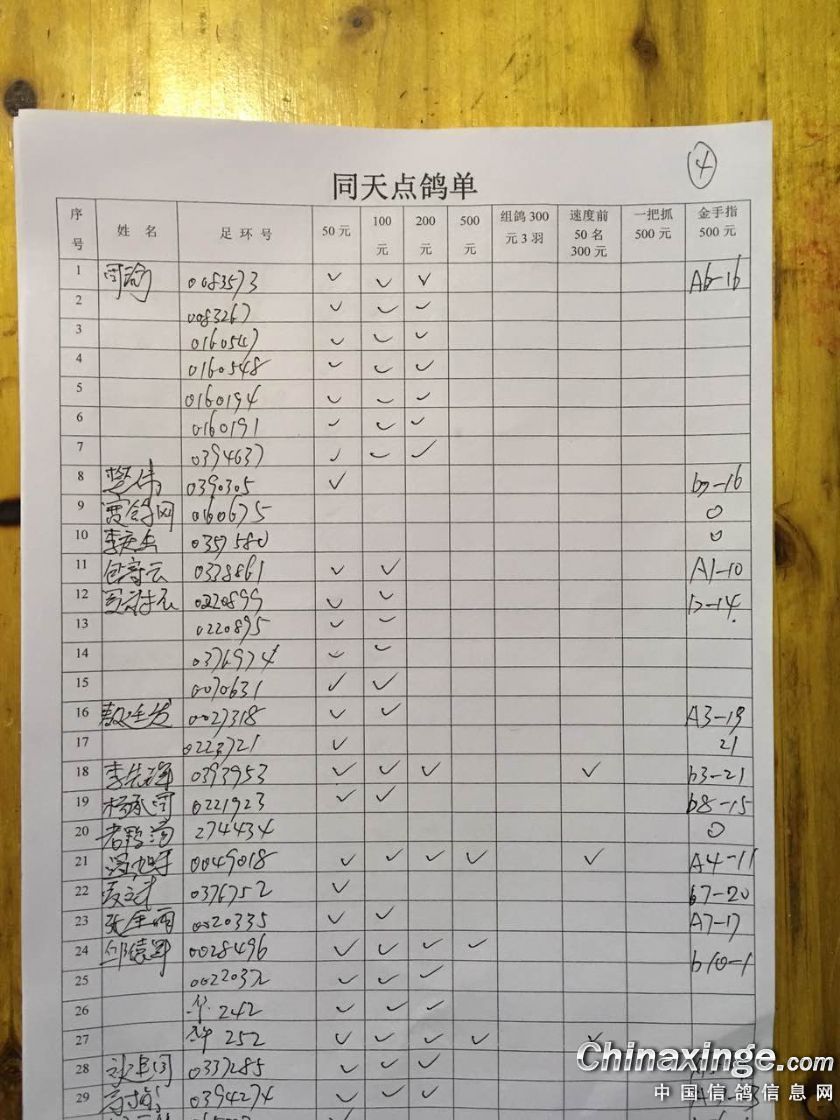 ④
同天点鸽单
序号 姓 名 足 环 号 50元 100元 200元 500元 组鸽300元3羽 速度前50名300元 一把抓500元 金手指500元
1 0083573 ✓ ✓ ✓ A6-16
2 0083267 ✓ ✓ ✓
3 0160547 ✓ ✓ ✓
4 0160548 ✓ ✓ ✓
5 0160194 ✓ ✓ ✓
6 0160191 ✓ ✓ ✓
7 0394637 ✓ ✓ ✓
8 0390305 ✓ b7-16
9 赛鸽网 0160675 0
10 0357580 0
11 包寿云 0338861 ✓ ✓ A1-10
12 0220899 ✓ ✓
13 0220895 ✓ ✓
14 0376974 ✓ ✓
15 0070631 ✓ ✓
16 0027318 ✓ ✓ A3-19
17 0223721 ✓ 21
18 0393953 ✓ ✓ ✓ ✓ b3-21
19 0221923 ✓ ✓ b8-15
20 274434 0
21 0049018 ✓ ✓ ✓ ✓ ✓ A4-11
22 0376752 ✓ b7-20
23 0020335 ✓ ✓ A7-17
24 0028496 ✓ ✓ ✓ ✓ b10-1
25 0022032 ✓ ✓ ✓
26 242 ✓ ✓ ✓
27 252 ✓ ✓ ✓ ✓ ✓
28 0337285 ✓ ✓ ✓
29 0394274 ✓ ✓ ✓
Chinaxinge.com
中国信鸽信息网